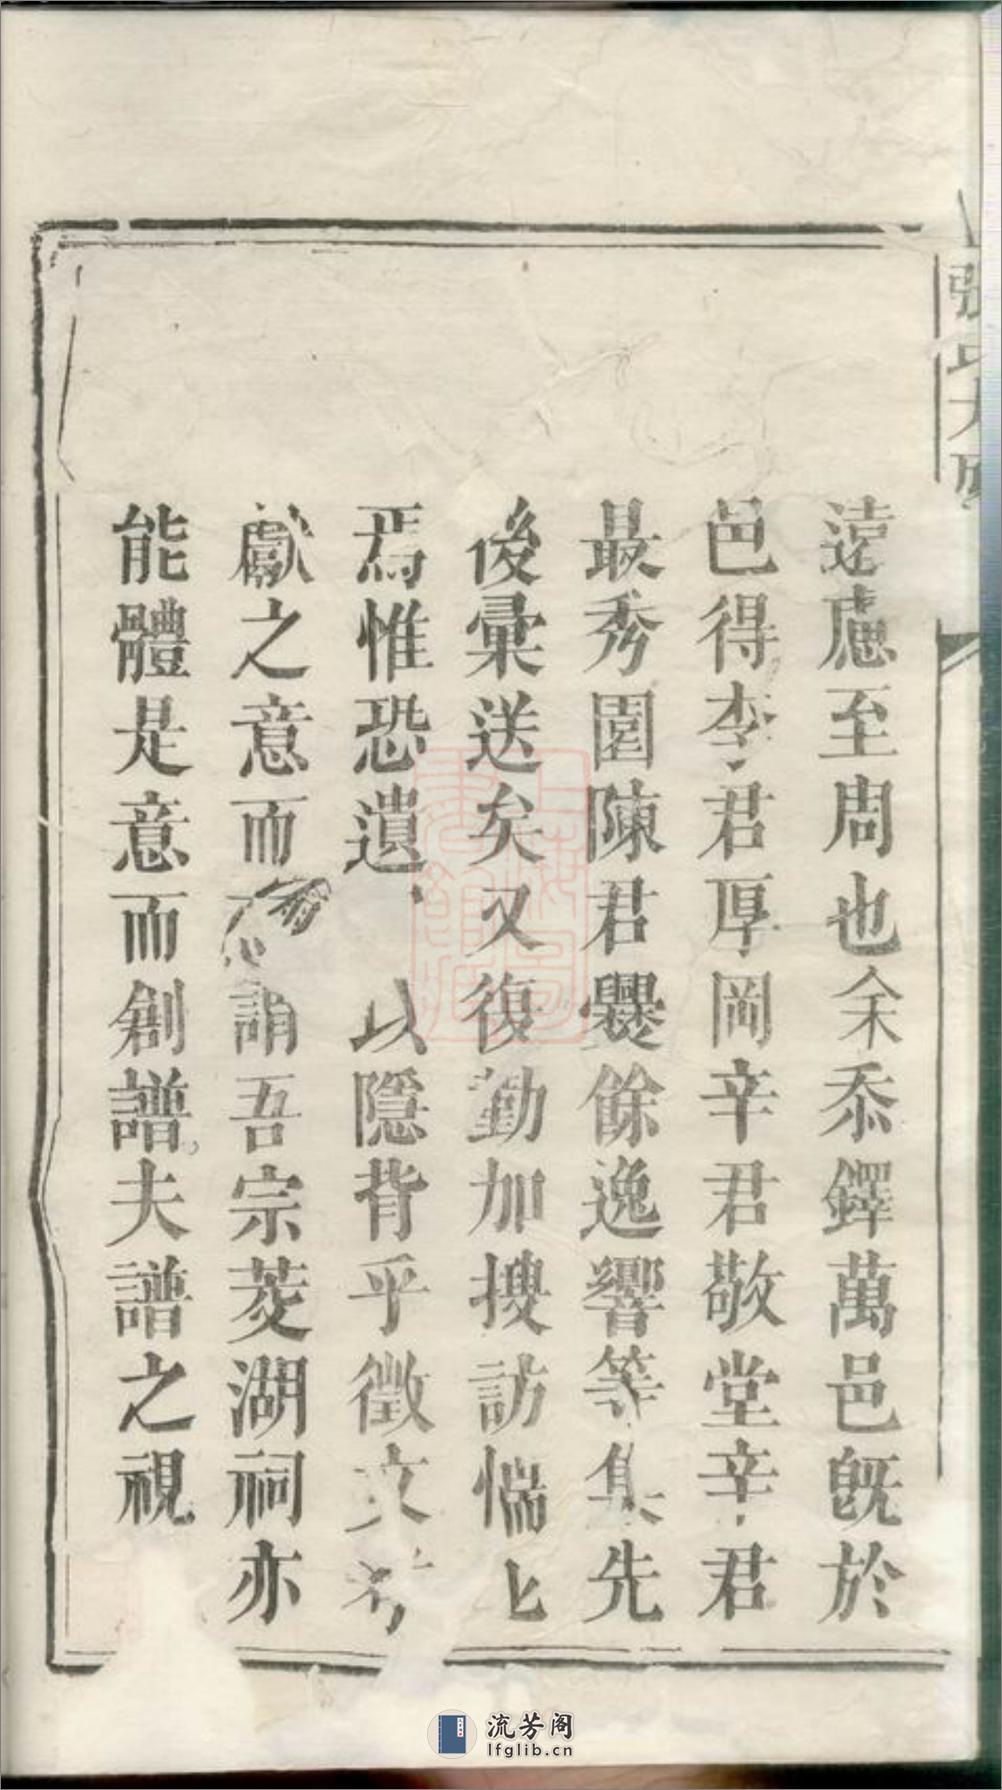 張氏大
遠慮至周也余忝鐸萬邑旣於
邑得李君厚岡辛君敬堂辛君
最秀園陳君爨餘逸響等集先
後彙送矣又復勤加搜訪惴匕
焉惟恐遺 以隱背乎徵文考
獻之意而 誚吾宗菱湖祠亦
能體是意而創譜夫譜之視
流芳阁
lfglib.cn